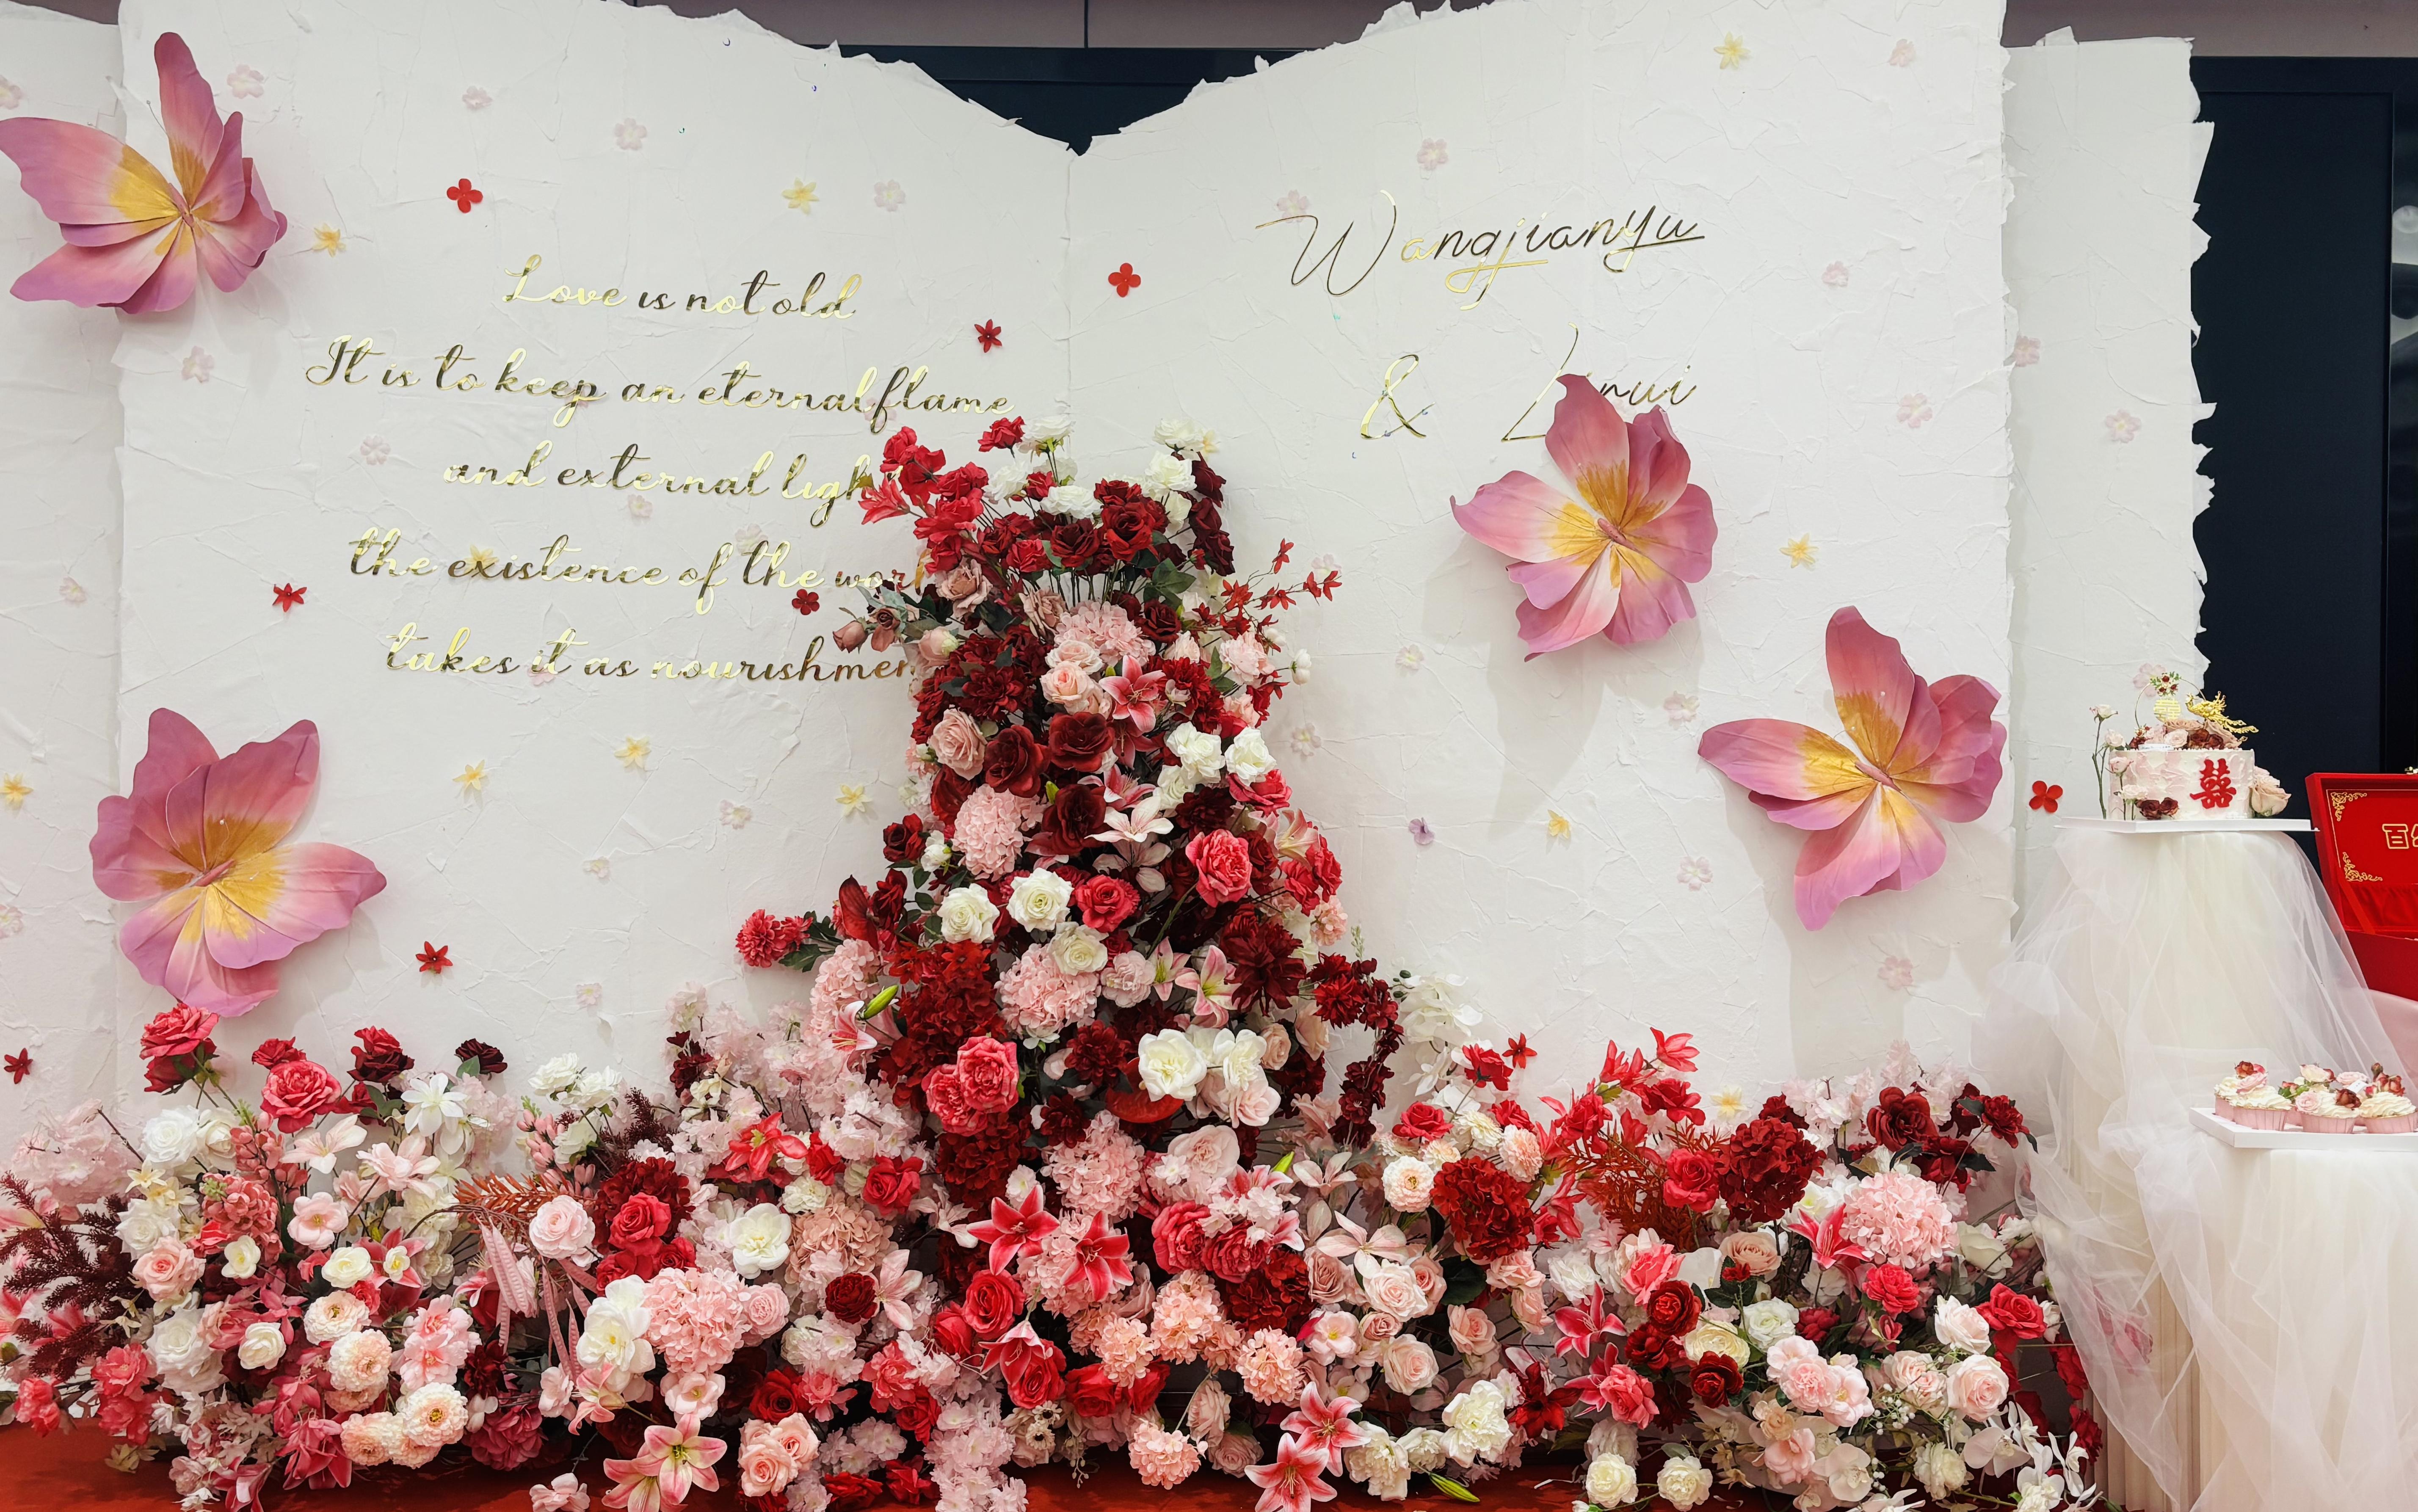 Love is not old
It is to keep an eternal flame
and external light
the existence of the world
takes it as nourishment
Wangjianyu
&
囍
百